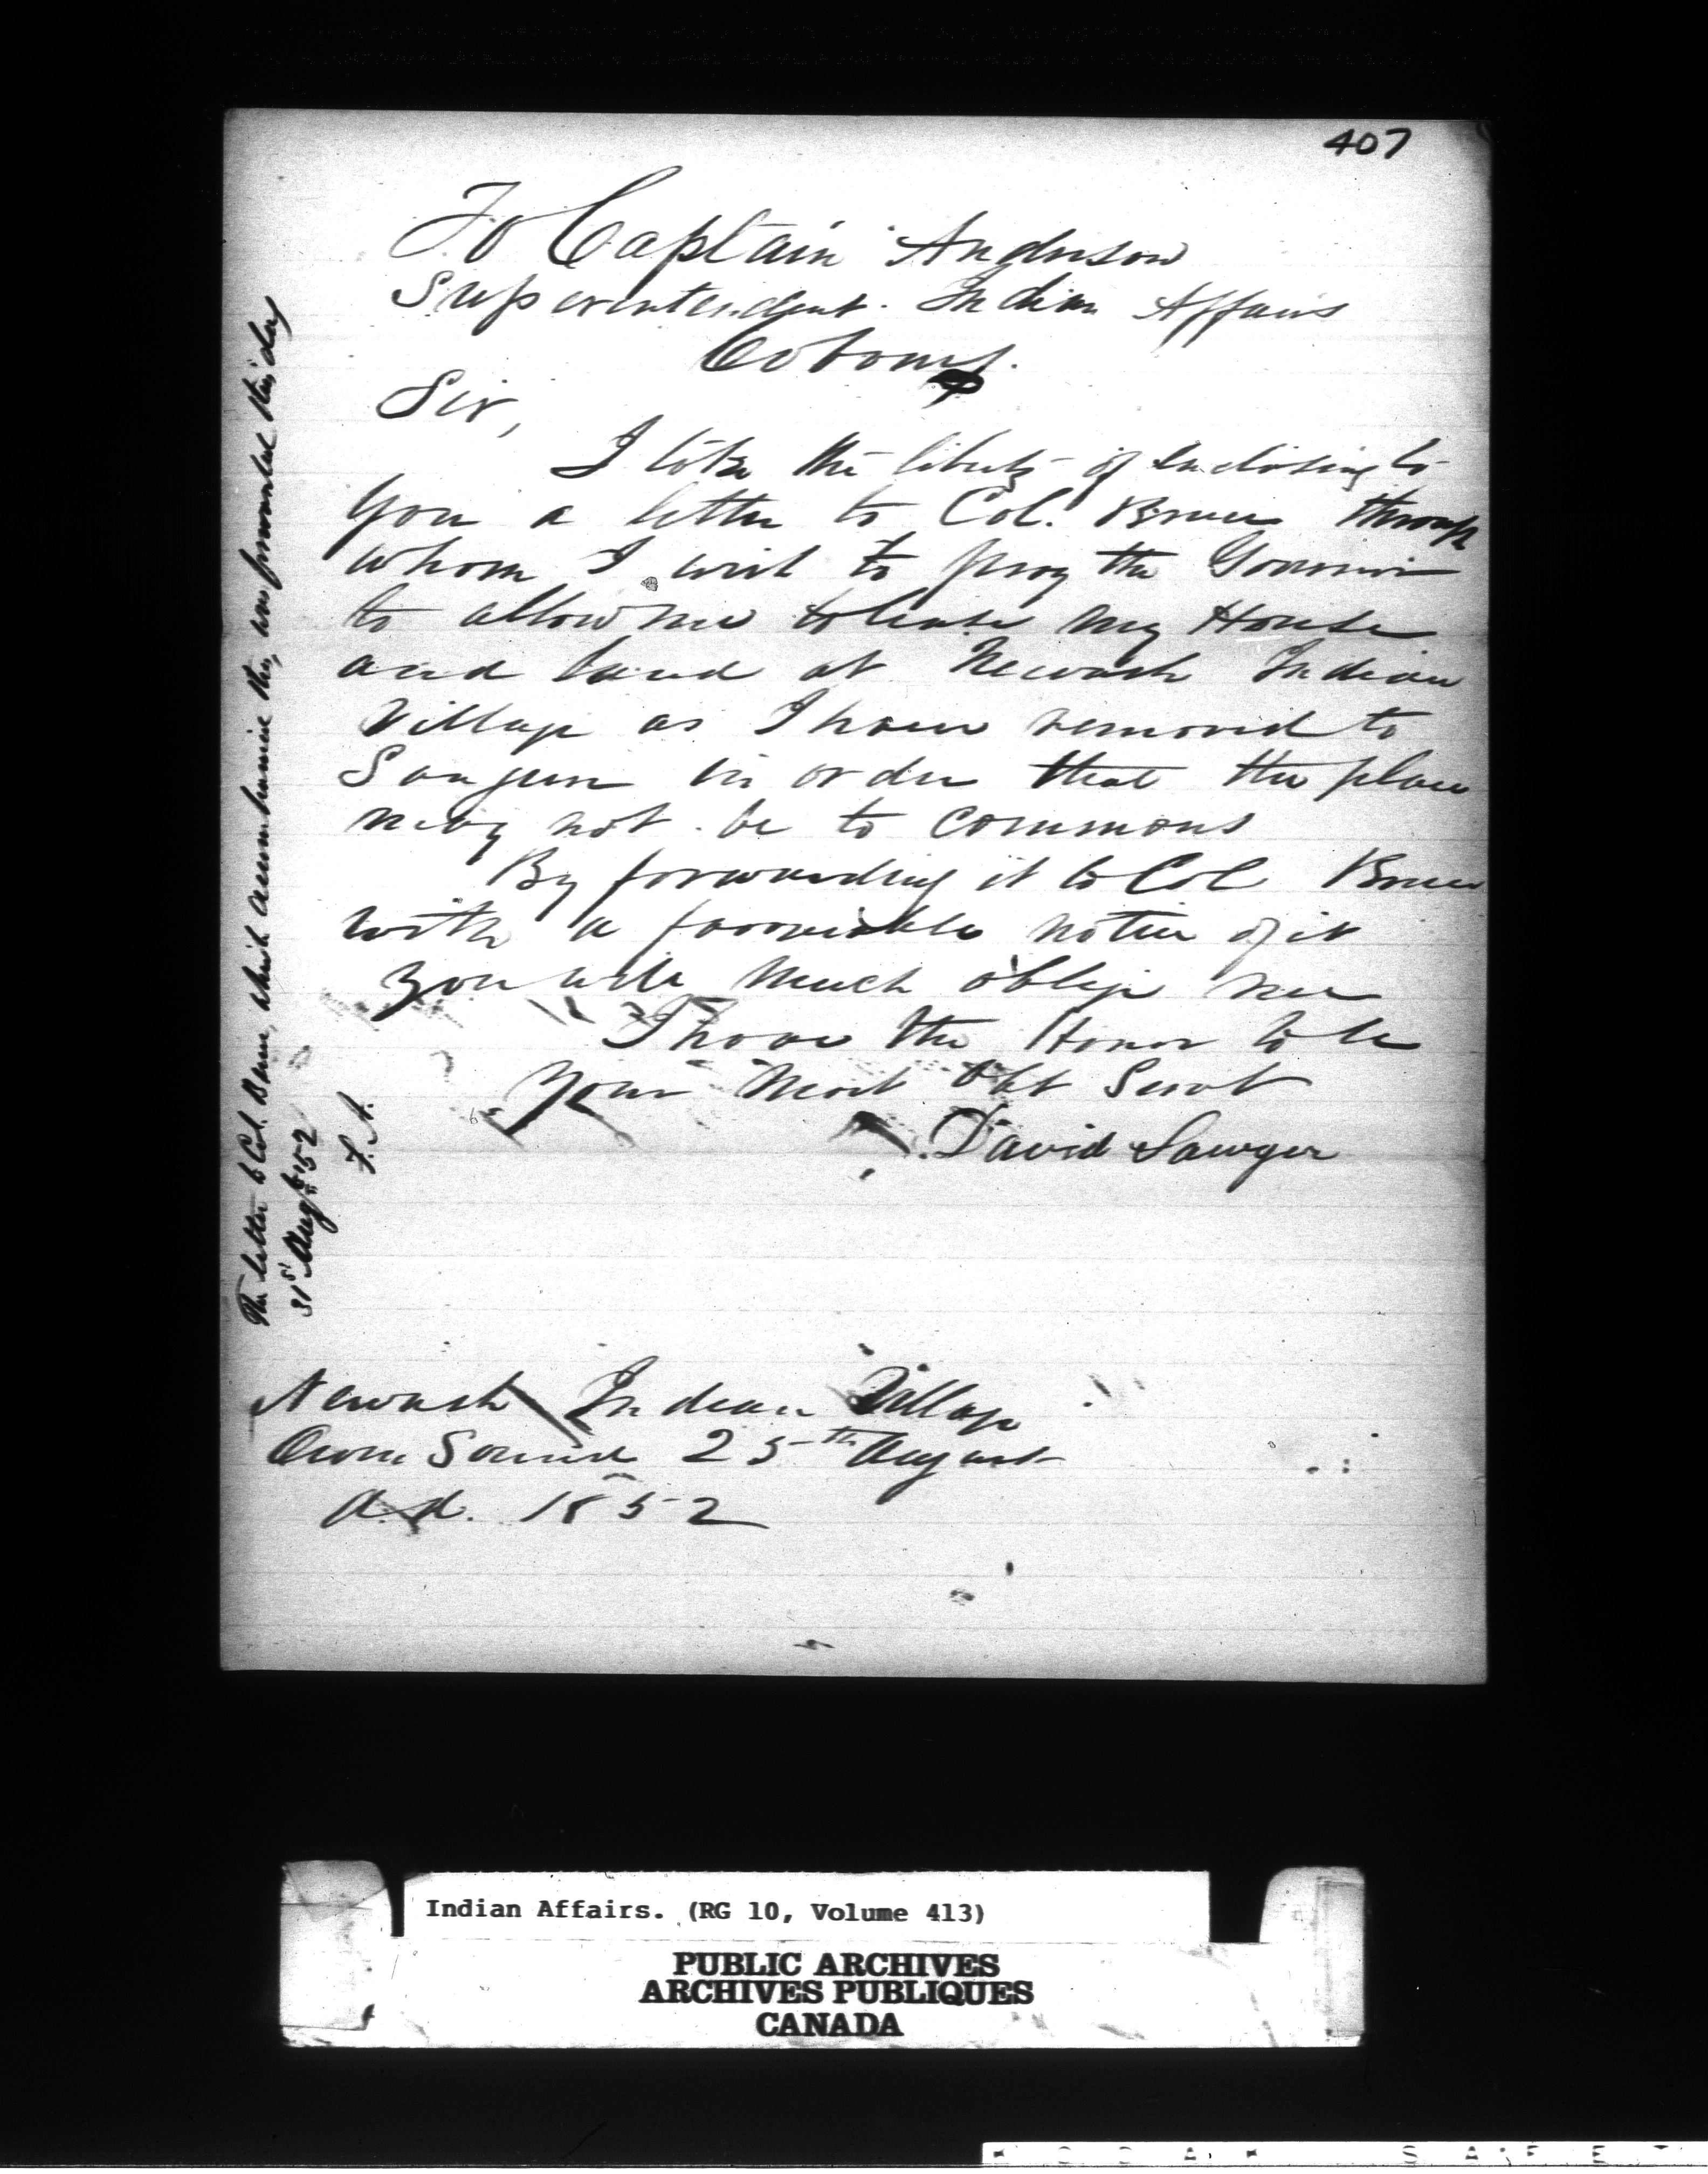 407
To Captain Anderson
Superintendent. Indian Affairs
Cobourg.
Sir,
I take the liberty of enclosing to
you a letter to Col. Bruce through
whom I wish to pray the Governor
to allow me to lease my House
and land at Newash Indian
Village as I have removed to
Saugeen in order that the place
may not be to commons
By forwarding it to Col Bruce
with a favorable notice of it
you will much oblige me
I have the Honor to be
Your Most Obt Servt
David Sawyer
Newash Indian Village
Owen Sound 25th August
A.D. 1852
The letter to Col. Bruce, which accompanied this, was forwarded this day
31st Augt 52
Indian Affairs. (RG 10, Volume 413)
PUBLIC ARCHIVES
ARCHIVES PUBLIQUES
CANADA